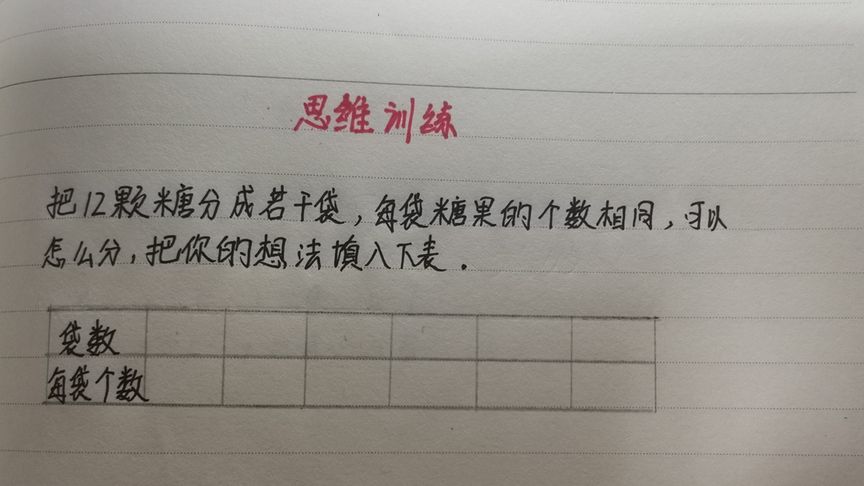 思维训练
把12颗糖分成若干袋，每袋糖果的个数相同，可以
怎么分，把你的想法填入下表.
袋数
每袋个数